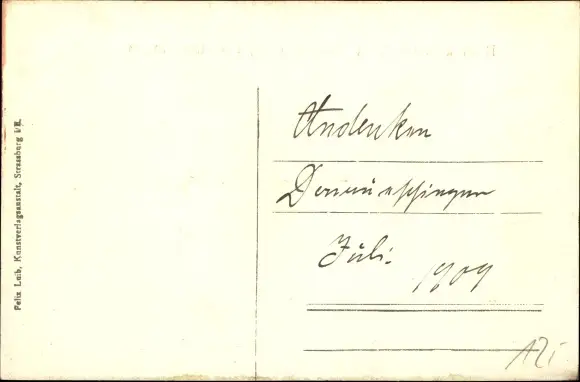 Andenken
Donaueschingen
Juli. 1909
Felix Luib, Kunstverlagsanstalt, Strassburg i/E.